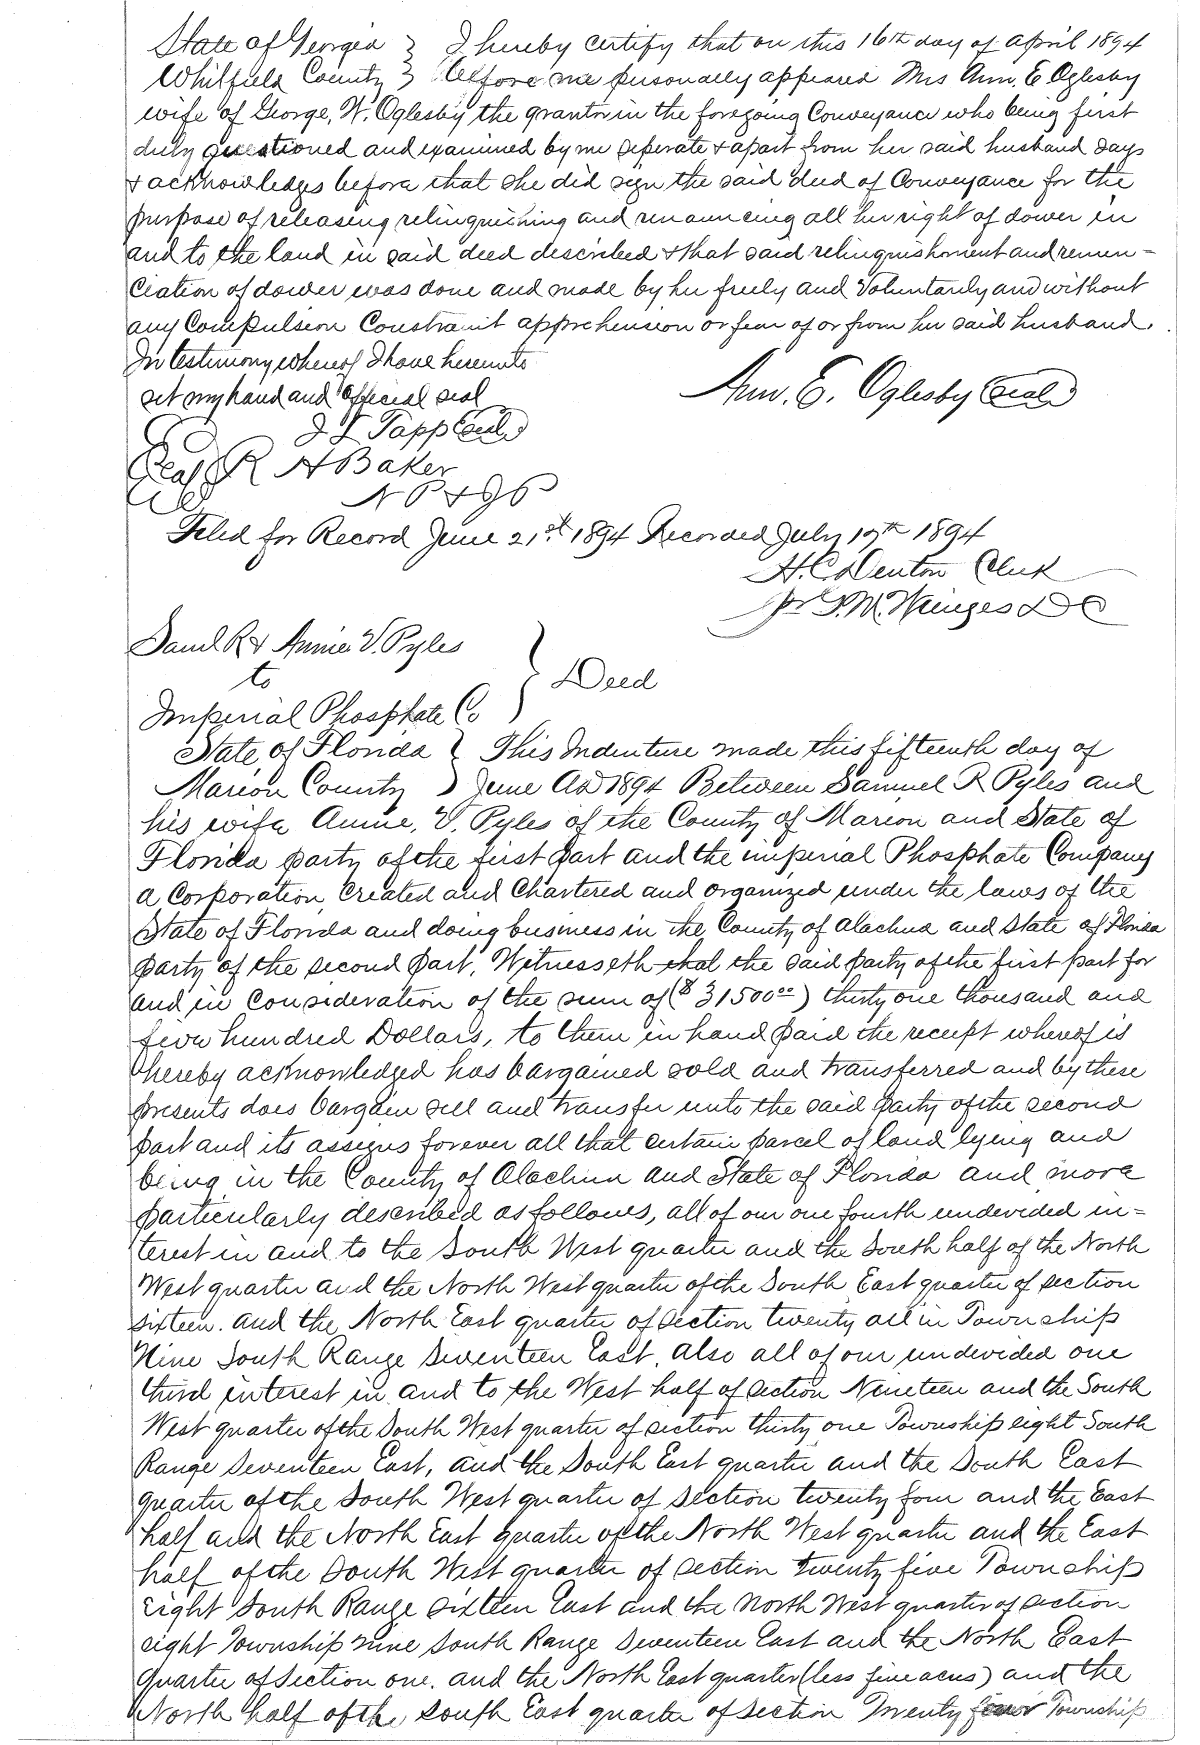 State of Georgia } I hereby certify that on this 16th day of April 1894
Whitfield County } Before me personally appeared Mrs Ann. E. Oglesby
wife of George, W. Oglesby the grantor in the foregoing Conveyance who being first
duly questioned and examined by me seperate & apart from her said husband says
& acknowledges before that she did sign the said deed of Conveyance for the
purpose of releasing relinquishing and renouncing all her right of dower in
and to the land in said deed described & that said relinquishment and renun-
ciation of dower was done and made by her freely and Voluntarily and without
any Compulsion Constraint apprehension or fear of or from her said husband.
In testimony whereof I have hereunto
set my hand and official seal Ann. E. Oglesby (Seal)
J L Tapp (Seal)
(Seal) R A Baker
N P & J P
Filed for Record June 21st 1894 Recorded July 19th 1894
H. C. Denton Clerk
pr S. M. Wienges D C
Saml R & Annie V. Pyles
to } Deed
Imperial Phosphate Co
State of Florida } This Indenture made this fifteenth day of
Marion County } June AD 1894 Between Samuel R Pyles and
his wife Annie, V. Pyles of the County of Marion and State of
Florida party of the first part and the imperial Phosphate Company
a Corporation, Created and Chartered and organized under the laws of the
State of Florida and doing business in the County of Alachua and State of Florida
party of the second part, Witnesseth that the said party of the first part for
and in Consideration of the sum of ($31500⁰⁰) thirty one thousand and
five hundred Dollars, to them in hand paid the receipt whereof is
hereby acknowledged has bargained sold and transferred and by these
presents does bargain sell and transfer unto the said party of the second
part and its assigns forever all that certain parcel of land lying and
being in the County of Alachua and State of Florida and more
particularly described as follows, all of our one fourth undivided in=
terest in and to the South West quarter and the South half of the North
West quarter and the North West quarter of the South East quarter of section
sixteen. and the North East quarter of section twenty all in Township
Nine South Range Seventeen East, also all of our undivided one
third interest in and to the West half of section Nineteen and the South
West quarter of the South West quarter of section thirty one Township eight South
Range Seventeen East, and the South East quarter and the South East
quarter of the South West quarter of section twenty four and the East
half and the North East quarter of the North West quarter and the East
half of the South West quarter of section twenty five Township
eight South Range sixteen East and the North West quarter of section
eight Township nine South Range Seventeen East and the North East
quarter of section one. and the North East quarter (less five acres) and the
North half of the South East quarter of section Twenty four Township